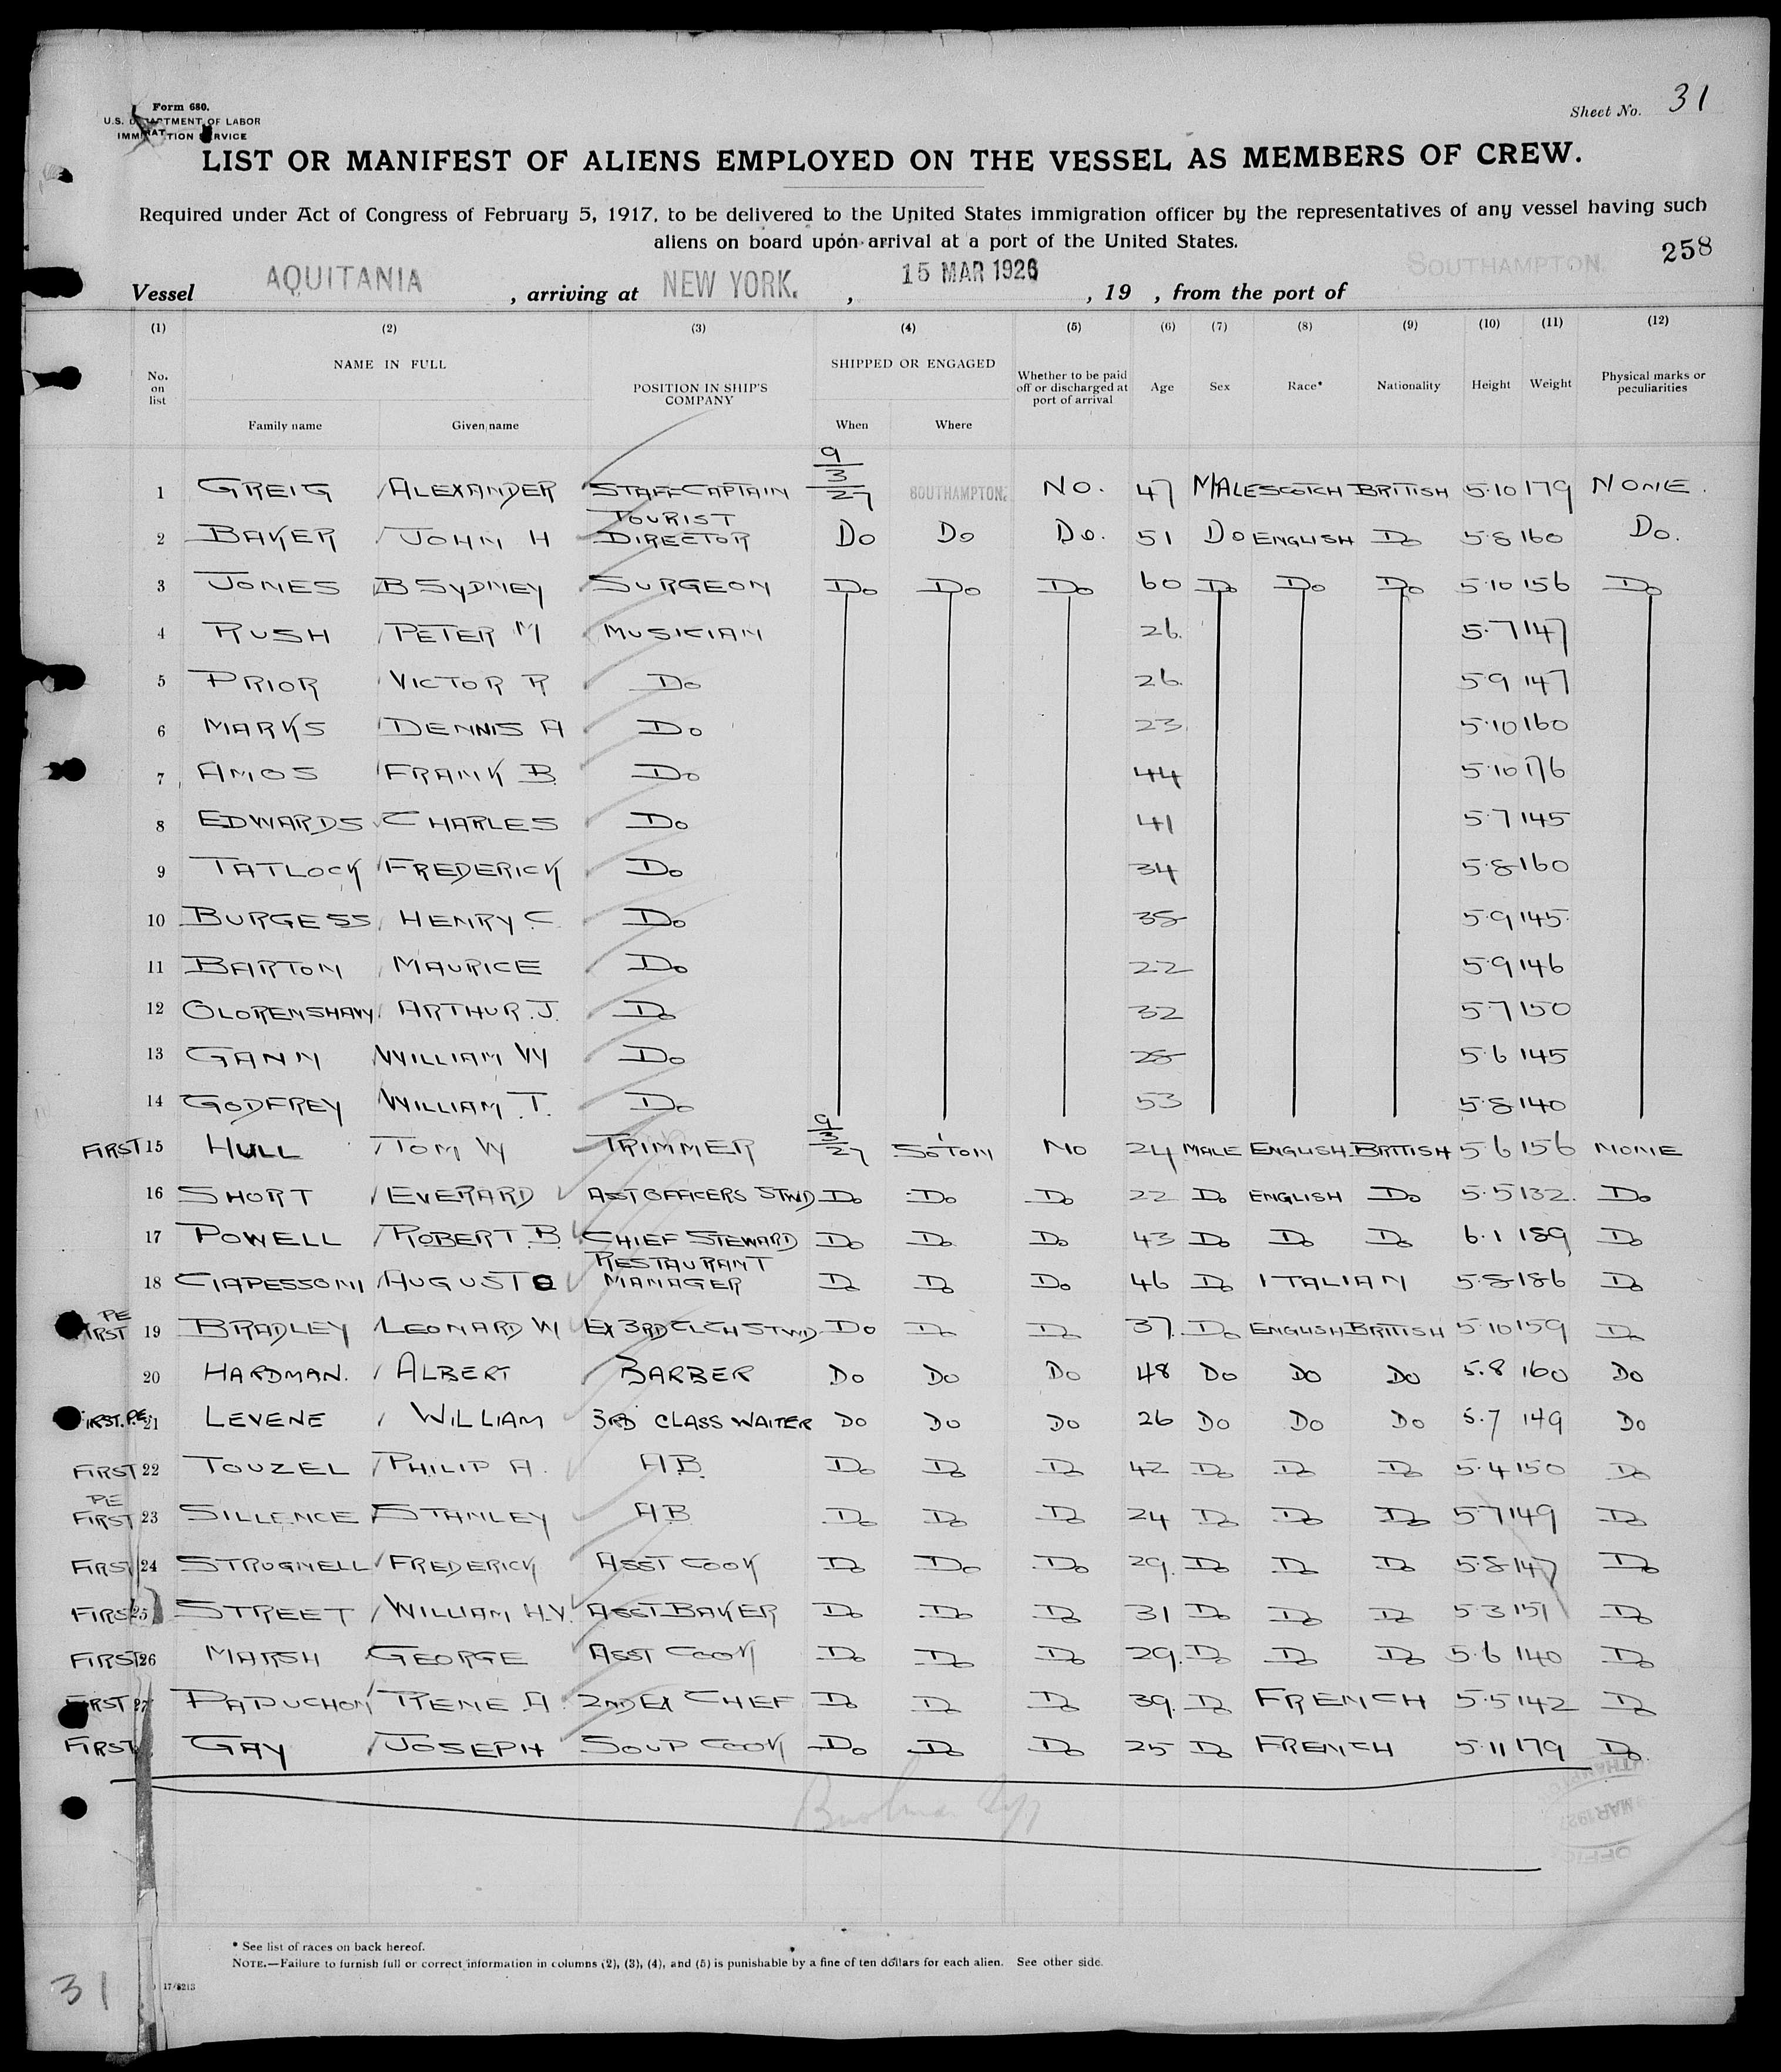 Form 680.
U.S. DEPARTMENT OF LABOR
IMMIGRATION SERVICE
Sheet No. 31
LIST OR MANIFEST OF ALIENS EMPLOYED ON THE VESSEL AS MEMBERS OF CREW.
Required under Act of Congress of February 5, 1917, to be delivered to the United States immigration officer by the representatives of any vessel having such
aliens on board upon arrival at a port of the United States.
258
Vessel AQUITANIA , arriving at NEW YORK. , 15 MAR 1926 , 19 , from the port of SOUTHAMPTON.
(1) (2) (3) (4) (5) (6) (7) (8) (9) (10) (11) (12)
No. on list NAME IN FULL Family name Given name POSITION IN SHIP'S COMPANY SHIPPED OR ENGAGED When Where Whether to be paid off or discharged at port of arrival Age Sex Race* Nationality Height Weight Physical marks or peculiarities
1 GREIG ALEXANDER STAFF CAPTAIN 9/3/27 SOUTHAMPTON. NO. 47 MALE SCOTCH BRITISH 5·10 179 NONE.
2 BAKER JOHN H TOURIST DIRECTOR Do Do Do. 51 Do ENGLISH Do 5·8 160 Do.
3 JONES B SYDNEY SURGEON Do Do Do 60 Do Do Do 5·10 156 Do
4 RUSH PETER M MUSICIAN 26 5·7 147
5 PRIOR VICTOR R Do 26 5·9 147
6 MARKS DENNIS A Do 23 5·10 160
7 AMOS FRANK B Do 44 5·10 176
8 EDWARDS CHARLES Do 41 5·7 145
9 TATLOCK FREDERICK Do 34 5·8 160
10 BURGESS HENRY C Do 38 5·9 145
11 BARTON MAURICE Do 22 5·9 146
12 OLORENSHAW ARTHUR. J. Do 32 5·7 150
13 GANN WILLIAM W Do 28 5·6 145
14 GODFREY WILLIAM. T. Do 53 5·8 140
FIRST 15 HULL TOM W TRIMMER 9/3/27 SOTON NO 24 MALE ENGLISH BRITISH 5·6 156 NONE
16 SHORT EVERARD ASST OFFICERS STWD Do Do Do 22 Do ENGLISH Do 5·5 132. Do
17 POWELL ROBERT. B. CHIEF STEWARD Do Do Do 43 Do Do Do 6·1 189 Do
18 CIAPESSONI AUGUSTO RESTAURANT MANAGER Do Do Do 46 Do ITALIAN 5·8 186 Do
PE FIRST 19 BRADLEY LEONARD W EX 3RD CL CH STWD Do Do Do 37. Do ENGLISH BRITISH 5·10 159 Do
20 HARDMAN. ALBERT BARBER Do Do Do 48 Do Do Do 5.8 160 Do
FIRST. P.E. 21 LEVENE WILLIAM 3RD CLASS WAITER Do Do Do 26 Do Do Do 5.7 149 Do
FIRST 22 TOUZEL PHILIP A. A.B. Do Do Do 42 Do Do Do 5·4 150 Do
PE FIRST 23 SILLENCE STANLEY A.B. Do Do Do 24 Do Do Do 5·7 149 Do
FIRST 24 STRUGNELL FREDERICK ASST COOK Do Do Do 29. Do Do Do 5·8 147 Do
FIRST 25 STREET WILLIAM H.V. ASST BAKER Do Do Do 31 Do Do Do 5·3 151 Do
FIRST 26 MARSH GEORGE ASST COOK Do Do Do 29. Do Do Do 5·6 140 Do
FIRST 27 PAPUCHON RENE A. 2ND EX CHEF Do Do Do 39. Do FRENCH 5·5 142 Do
FIRST GAY JOSEPH SOUP COOK Do Do Do 25 Do FRENCH 5·11 179 Do.
* See list of races on back hereof.
NOTE.—Failure to furnish full or correct information in columns (2), (3), (4), and (5) is punishable by a fine of ten dollars for each alien. See other side.
31
17/8213